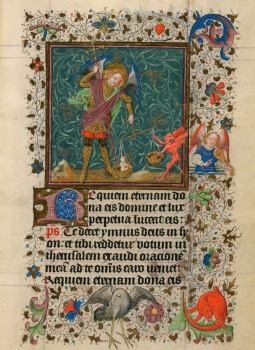 Requiem eternam do
na eis domine et lux
perpetua luceat eis.
ps Te decet ymnus deus in sy
on: et tibi reddetur votum in
iherusalem exaudi oracione
mea ad te omis caro veniet
Requiem eternam dona eis